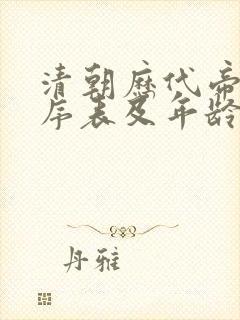 清朝历代帝
序表及年龄
丹雅